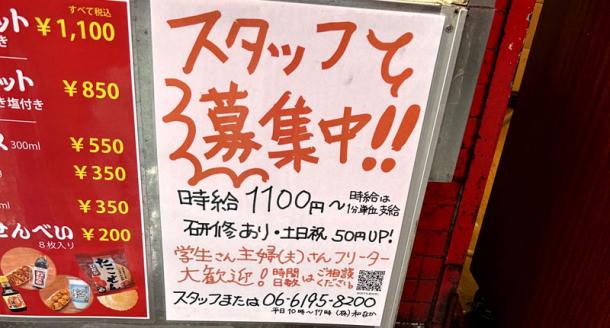 すべて税込
ット ¥1,100
き
ット ¥850
き塩付き
ス 300ml ¥550
¥350
¥350
せんべい ¥200
8枚入り
たこせん
スタッフ
募集中!!
時給 1100円〜 時給は
1分単位支給
研修あり・土日祝 50円UP!
学生さん 主婦(夫)さん フリーター
大歓迎! 時間日数は ご相談ください
スタッフまたは 06-6195-8200
平日10時〜17時 (株)和なか